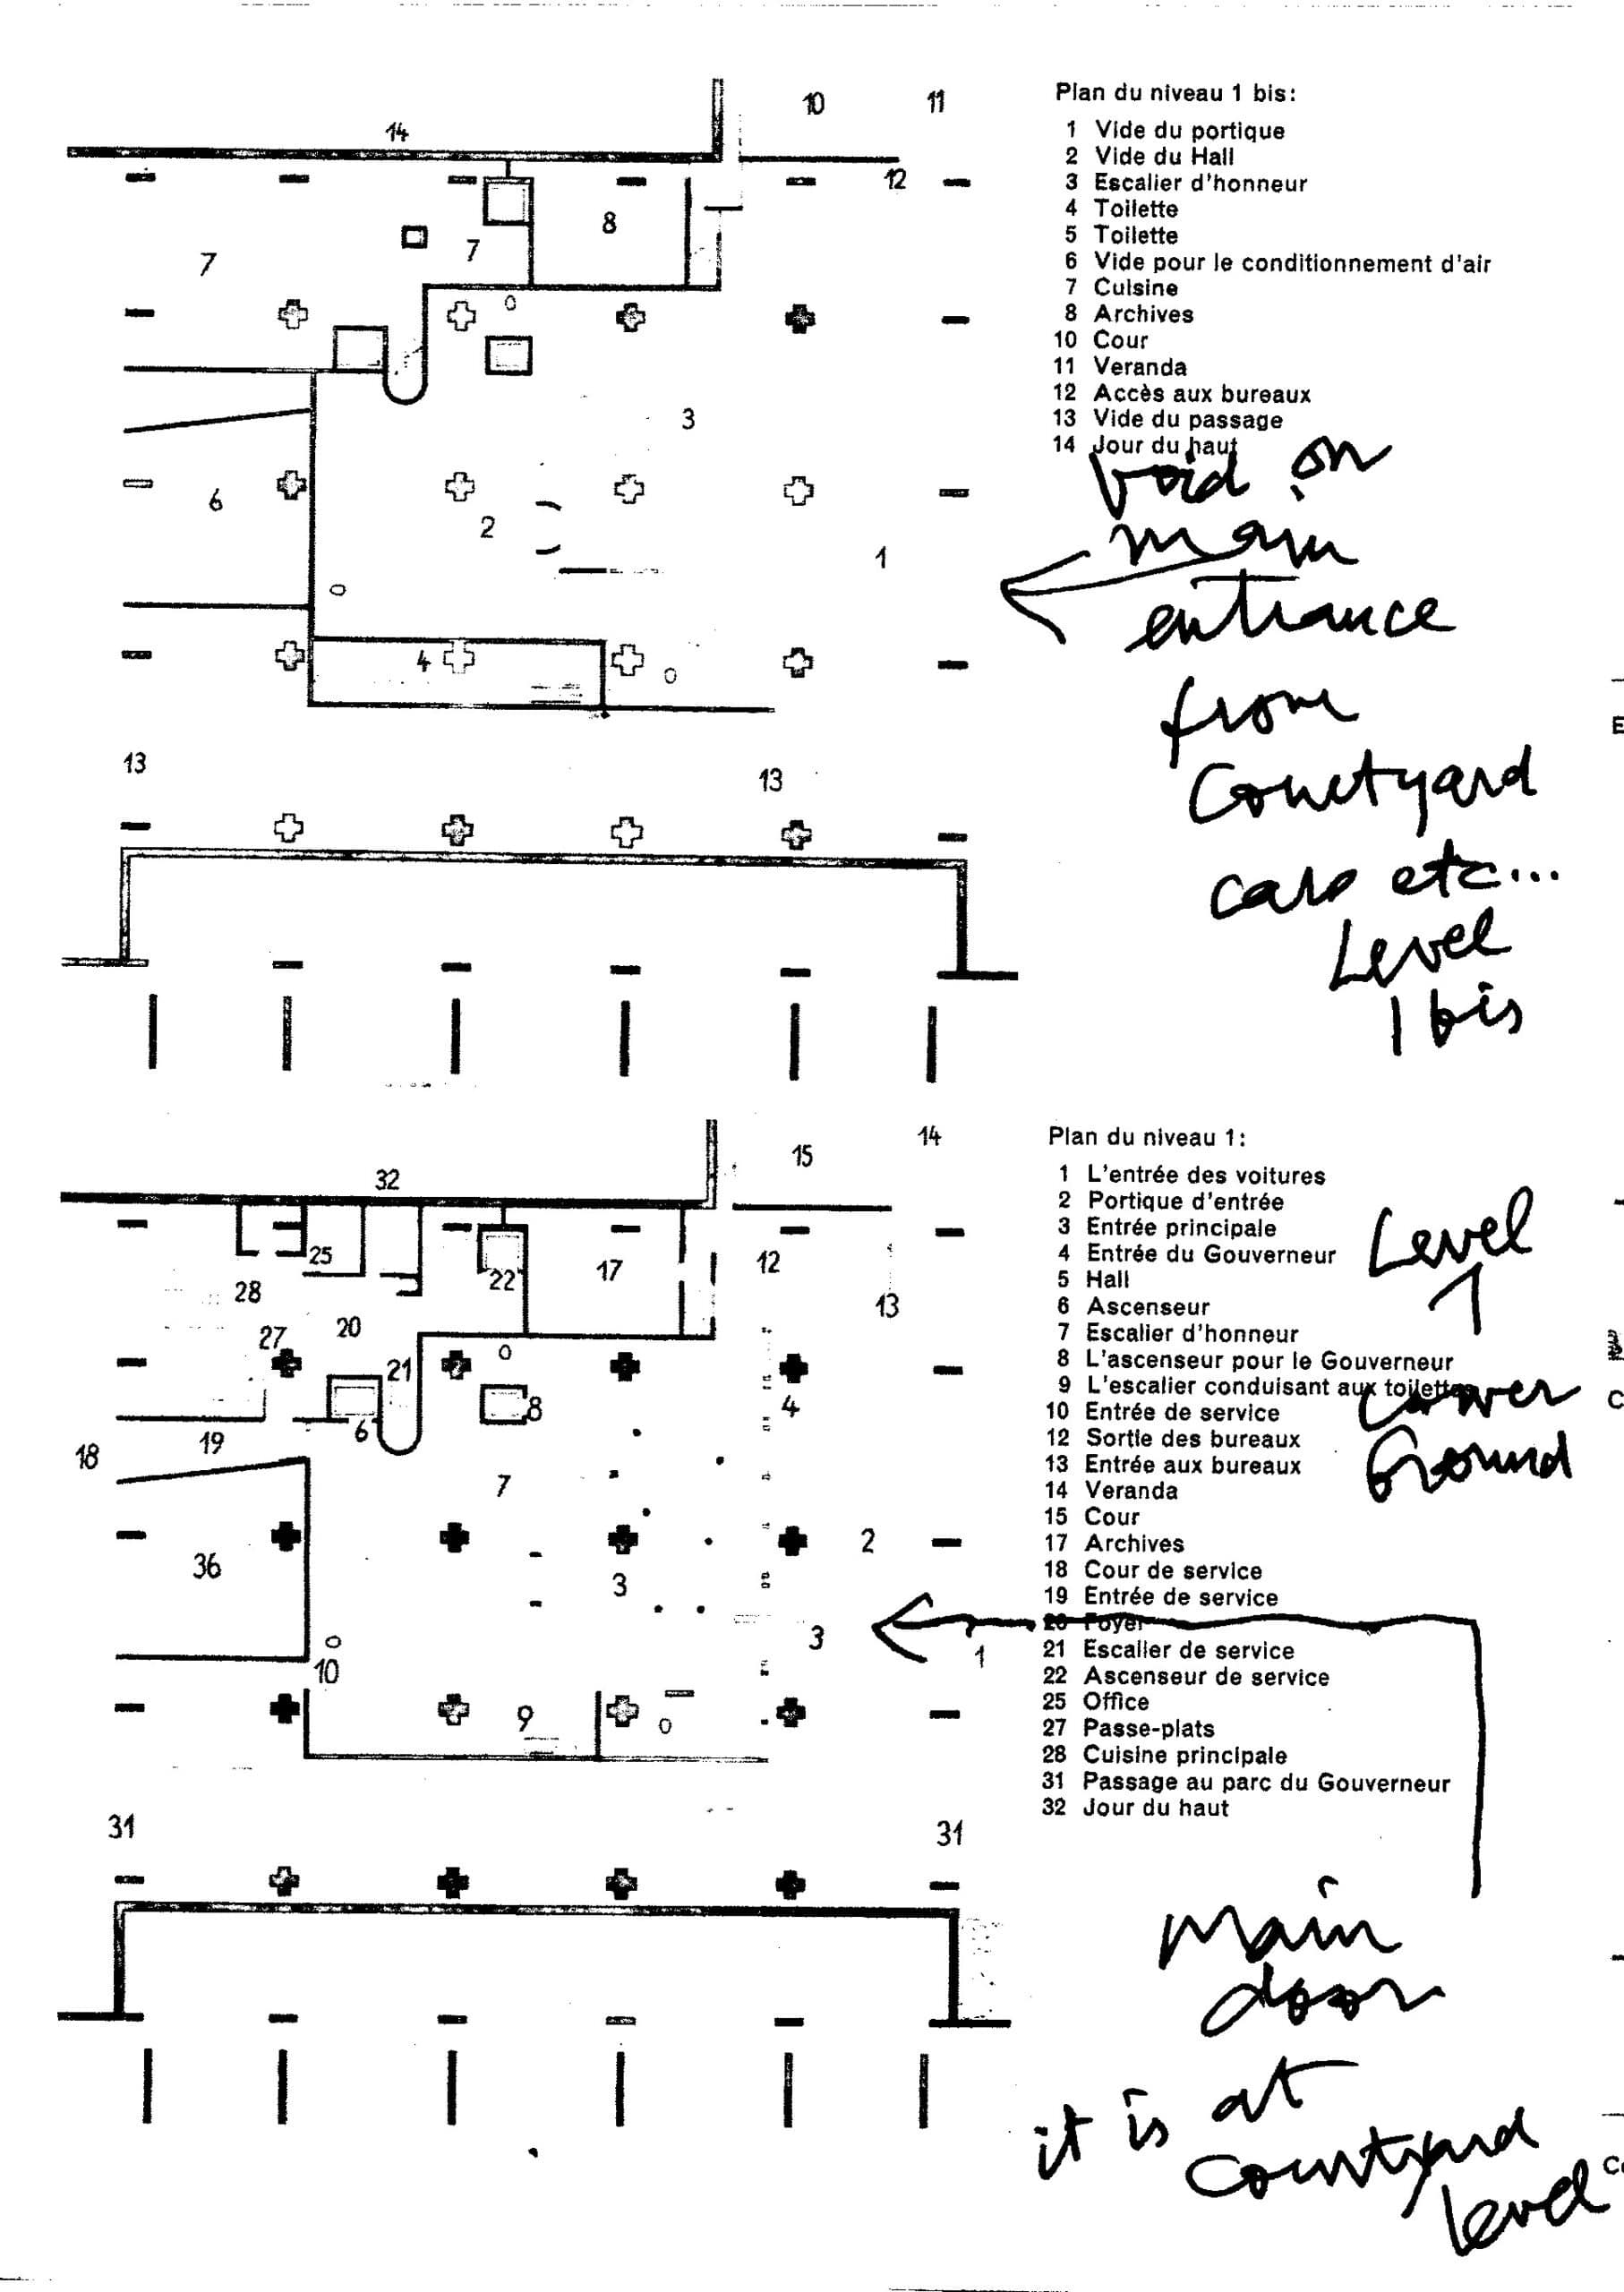 14
10
11
12
7
7
8
3
6
2
1
4
13
13
Plan du niveau 1 bis:
1 Vide du portique
2 Vide du Hall
3 Escalier d'honneur
4 Toilette
5 Toilette
6 Vide pour le conditionnement d'air
7 Cuisine
8 Archives
10 Cour
11 Veranda
12 Accès aux bureaux
13 Vide du passage
14 Jour du haut
void on
main
entrance
from
Courtyard
cars etc...
Level
1 bis
32
15
14
25
28
27
20
21
22
17
12
13
18
19
6
8
4
7
36
3
2
3
1
10
9
31
31
Plan du niveau 1:
1 L'entrée des voitures
2 Portique d'entrée
3 Entrée principale
4 Entrée du Gouverneur
5 Hall
6 Ascenseur
7 Escalier d'honneur
8 L'ascenseur pour le Gouverneur
9 L'escalier conduisant aux toilettes
10 Entrée de service
12 Sortie des bureaux
13 Entrée aux bureaux
14 Veranda
15 Cour
17 Archives
18 Cour de service
19 Entrée de service
20 Foyer
21 Escalier de service
22 Ascenseur de service
25 Office
27 Passe-plats
28 Cuisine principale
31 Passage au parc du Gouverneur
32 Jour du haut
Level
1
Lower
Ground
main
door
it is at
courtyard
level